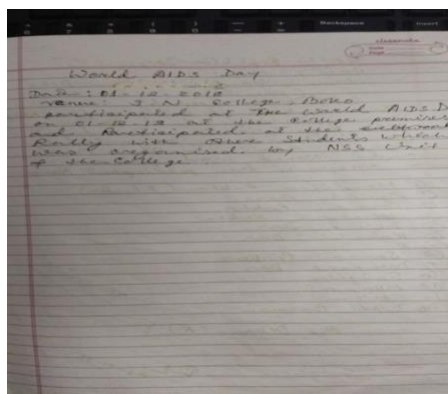 Backspace
Insert
classmate
Date
Page
World AIDS Day
Date: 01-12-2018
Venue: J N College, Boko
participated at the World AIDS D
on 01-12-18 at the College premises
and Participated at the
Rally with Other Students which
was organised by NSS Unit
of the College